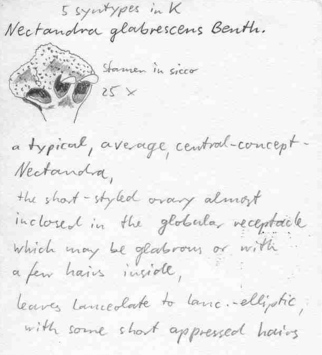 5 syntypes in K
Nectandra glabrescens Benth.
Stamen in sicco
25 x
a typical, average, central-concept-
Nectandra,
the short-styled ovary almost
inclosed in the globular receptacle
which may be glabrous or with
a few hairs inside,
leaves lanceolate to lanc.-elliptic,
with some short appressed hairs